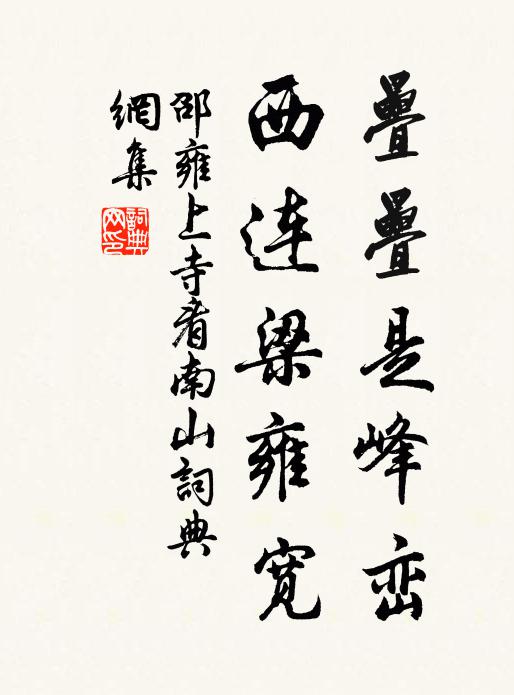 疊疊是峰峦
西連梁雍寬
邵雍上寺看南山詞典
網集
詞典網印